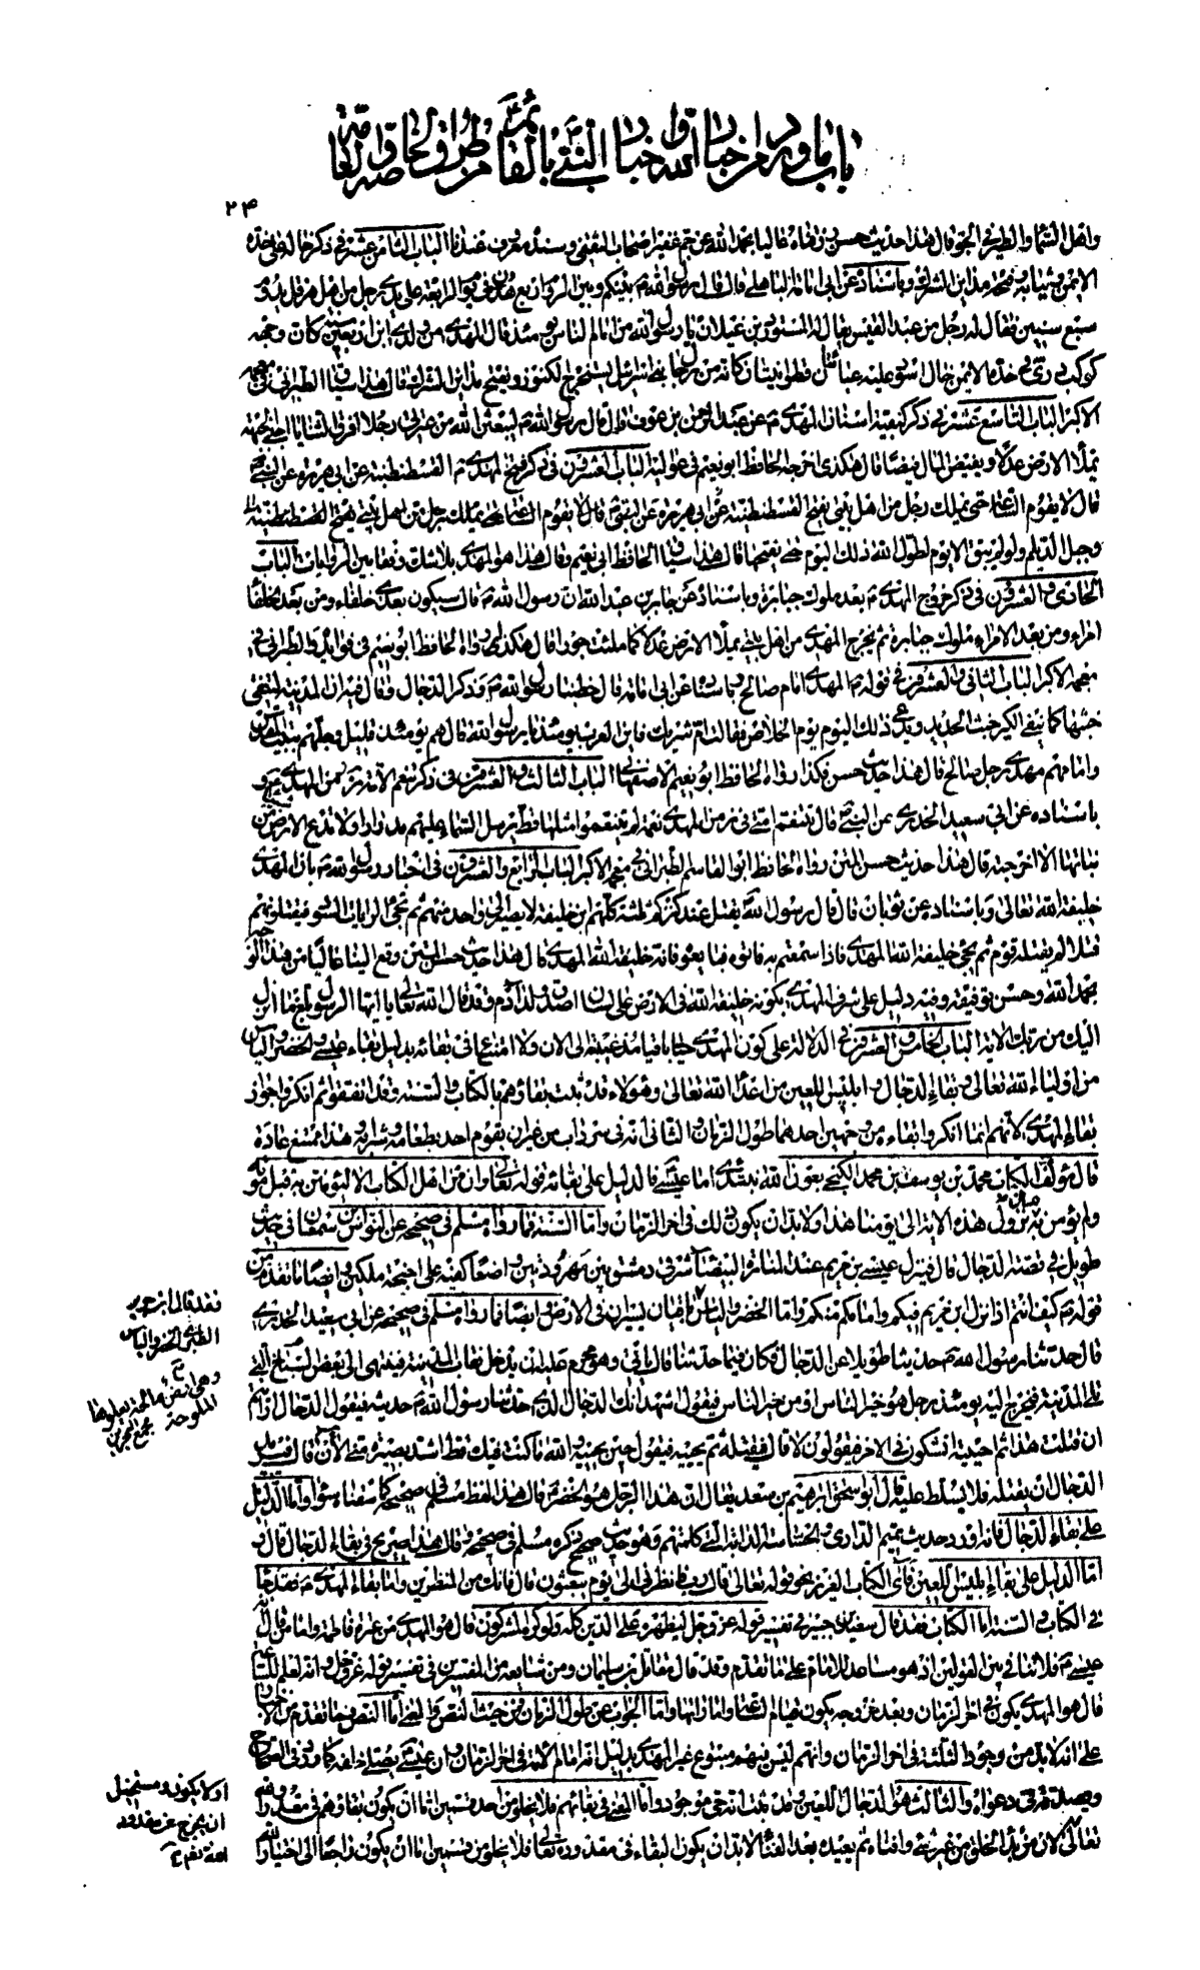 باب ما ورد من اخبار الله واخبار النبي بالقائم من طرق الخاصة والعامة
٢٤
واهل السماء والطير في الجو قال هذا حديث حسن رزقناه عاليا بحمد الله عن جم غفير اصحاب الثقفي وسنده معروف عندنا الباب الثامن عشر في ذكر خاله على خده
الايمن وثيابه وفتحه مداين الشرك وباسناده عن ابى امامة الباهلي قال قال رسول الله م بينكم وبين الروم اربع هدن في يوم الرابعة على يدى رجل من اهل هرقل يدوم
سبع سنين فقال له رجل من عبد القيس يقال له المستورد بن غيلان يا رسول الله من امام الناس يومئذ قال المهدى م من ولدى ابن اربعين سنة كان وجهه
كوكب درى في خده الايمن خال اسود عليه عبائتان قطوانيتان كانه من رجال بنى اسرائيل يستخرج الكنوز ويفتح مداين الشرك قال هذا سياق الطبرانى في معجمه
الاكبر الباب التاسع عشر في ذكر كيفية اسنان المهدى م عن عبد الرحمن بن عوف قال قال رسول الله م ليبعثن الله من عترتى رجلا افرق الثنايا اجلى الجبهة
يملأ الارض عدلا ويفيض المال فيضا قال هكذى اخرجه الحافظ ابو نعيم في عواليه الباب العشرون في ذكر فتح المهدى م القسطنطنية عن ابى هريرة عن النبي
قال لا يقوم الساعة حتى يملك رجل من اهل بيتى يفتح القسطنطينية
وجبل الديلم ولو لم يبق الا يوم لطول الله ذلك اليوم حتى يفتحها قال هذا سياق الحافظ ابى نعيم وقال هذا هو المهدى بلا شك وفقا بين الروايات الباب
الحادى والعشرون في ذكر خروج المهدى م بعد ملوك جبابرة وباسناده عن جابر بن عبد الله ان رسول الله م قال سيكون بعدى خلفاء ومن بعد الخلفاء
امراء ومن بعد الامراء ملوك جبابرة ثم يخرج المهدى من اهل بيتى يملأ الارض عدلا كما ملئت جورا قال هكذى رواه الحافظ ابو نعيم في فوائده والطبرانى في
معجمه الاكبر الباب الثانى والعشرون في قوله م المهدى امام صالح وباسناده عن ابى امامة قال خطبنا رسول الله م وذكر الدجال وقال فيه ان المدينة لتنقى
خبثها كما ينقى الكير خبث الحديد ويدعى ذلك اليوم يوم الخلاص فقالت ام شريك فاين العرب يومئذ يا رسول الله قال هم يومئذ قليل وجلهم ببيت المقدس
وامامهم مهدى رجل صالح قال هذا حديث حسن هكذا رواه الحافظ ابو نعيم الاصفهانى الباب الثالث والعشرون في ذكر تنعم الامة زمن المهدى م
باسناده عن ابى سعيد الخدرى عن النبي قال تتنعم امتى في زمن المهدى نعمة لم يتنعموا مثلها قط يرسل السماء عليهم مدرارا ولا تدع الارض من
نباتها الا اخرجته قال هذا حديث حسن المتن رواه الحافظ ابو القاسم الطبرانى في معجمه الاكبر الباب الرابع والعشرون في اخبار رسول الله م بان المهدى
خليفة الله تعالى وباسناده عن ثوبان قال قال رسول الله يقتل عند كنزكم ثلثة كلهم ابن خليفة لا يصير الى واحد منهم ثم تجئ الرايات السود فيقتلونهم
قتلا لم يقتله قوم ثم يجئ خليفة الله المهدى فاذا سمعتم به فأتوه فبايعوه فانه خليفة الله المهدى قال هذا حديث حسن المتن وقع الينا عاليا من هذا الوجه
بحمد الله وحسن توفيقه وفيه دليل على شرف المهدى بكونه خليفة الله في الارض على لسان اصدق ولد آدم وقد قال الله تعالى يا ايها الرسول بلغ ما انزل
اليك من ربك الآية الباب الخامس والعشرون في الدلالة على كون المهدى حيا باقيا مذ غيبته الى الان ولا امتناع في بقائه بدليل بقاء عيسى والخضر والياس
من اولياء الله تعالى وبقاء الدجال وابليس اللعين من اعداء الله تعالى وهؤلاء قد ثبت بقاؤهم بالكتاب والسنة وقد اتفقوا ثم انكروا جواز
بقاء المهدى لانهم انما انكروا بقاءه من وجهين احدهما طول الزمان والثانى انه في سرداب من غير ان يقوم احد بطعامه وشرابه وهذا ممتنع عادة
قال مؤلف الكتاب محمد بن يوسف بن محمد الكنجى بعون الله نبتدى اما عيسى فالدليل على بقائه قوله تعالى وان من اهل الكتاب الا ليؤمنن به قبل موته
ولم يؤمن به منذ نزول هذه الآية الى يومنا هذا ولا بد ان يكون ذلك في اخر الزمان واما السنة فما رواه مسلم في صحيحه عن النواس بن سمعان في حديث
طويل في قصة الدجال قال فينزل عيسى بن مريم عند المنارة البيضاء شرقى دمشق بين مهرودتين واضعا كفيه على اجنحة ملكين وايضا ما تقدم من
قوله م كيف انتم اذا نزل ابن مريم فيكم وامامكم منكم واما الخضر والياس باقيان يسيران في الارض وايضا فما رواه مسلم في صحيحه عن ابى سعيد الخدرى
قال حدثنا رسول الله م حديثا طويلا عن الدجال فكان فيما حدثنا قال يأتى وهو محرم عليه ان يدخل نقاب المدينة فينتهى الى بعض السباخ التى
تلى المدينة فيخرج اليه يومئذ رجل هو خير الناس او من خير الناس فيقول اشهد انك الدجال الذى حدثنا رسول الله م حديثه فيقول الدجال أرأيتم
ان قتلت هذا ثم احييته اتشكون في الامر فيقولون لا قال فيقتله ثم يحييه فيقول حين يحييه والله ما كنت فيك قط اشد بصيرة منى الآن قال فيريد
الدجال ان يقتله فلا يسلط عليه قال ابو اسحق ابرهيم بن سعد يقال ان هذا الرجل هو الخضر قال هذا لفظ مسلم في صحيحه كما سقناه سواء واما الدليل
على بقاء الدجال فانه اورد حديث تميم الدارى والجساسة الدابة التى كلمتهم وهو حديث صحيح ذكره مسلم في صحيحه وقال هذا صريح في بقاء الدجال قال و
اما الدليل على بقاء ابليس اللعين فآى الكتاب العزيز نحو قوله تعالى قال رب فانظرنى الى يوم يبعثون قال فانك من المنظرين واما بقاء المهدى م فقد جاء
في الكتاب والسنة اما الكتاب فقد قال سعيد بن جبير في تفسير قوله عز وجل ليظهره على الدين كله ولو كره المشركون قال هو المهدى من عترة فاطمة واما من قال انه
عيسى م فلا تنافى بين القولين اذ هو مساعد للامام على ما تقدم وقد قال مقاتل بن سليمان ومن شايعه من المفسرين في تفسير قوله عز وجل وانه لعلم للساعة
قال هو المهدى يكون في اخر الزمان وبعد خروجه يكون قيام الساعة واماراتها واما الجواب عن طول الزمان فمن حيث النص والمعنى اما النص فما تقدم من الاخبار
على انه لا بد من وجود الثلثة في اخر الزمان وانهم ليس فيهم متبوع غير المهدى بدليل انه امام الامة في اخر الزمان وان عيسى يصلى خلفه كما ورد في الصحاح
ويصدقه في دعواه والثالث هو الدجال اللعين وقد ثبت انه حى موجود واما المعنى في بقائهم فلا يخلو من احد قسمين اما ان يكون بقاؤهم في مقدور الله
تعالى لان من بدأ الخلق من غير شئ وافناه ثم يعيده بعد الفناء لا بد ان يكون البقاء في مقدوره تعالى فلا يخلو من قسمين اما ان يكون راجعا الى اختيار الله
فقد قال ابن جرير
الطبرى الخضر والياس
وهى ارض مالحة يعلوها
الملوحة مجمع البحرين
او لا يكون ومستحيل
ان يخرج عن مقدور